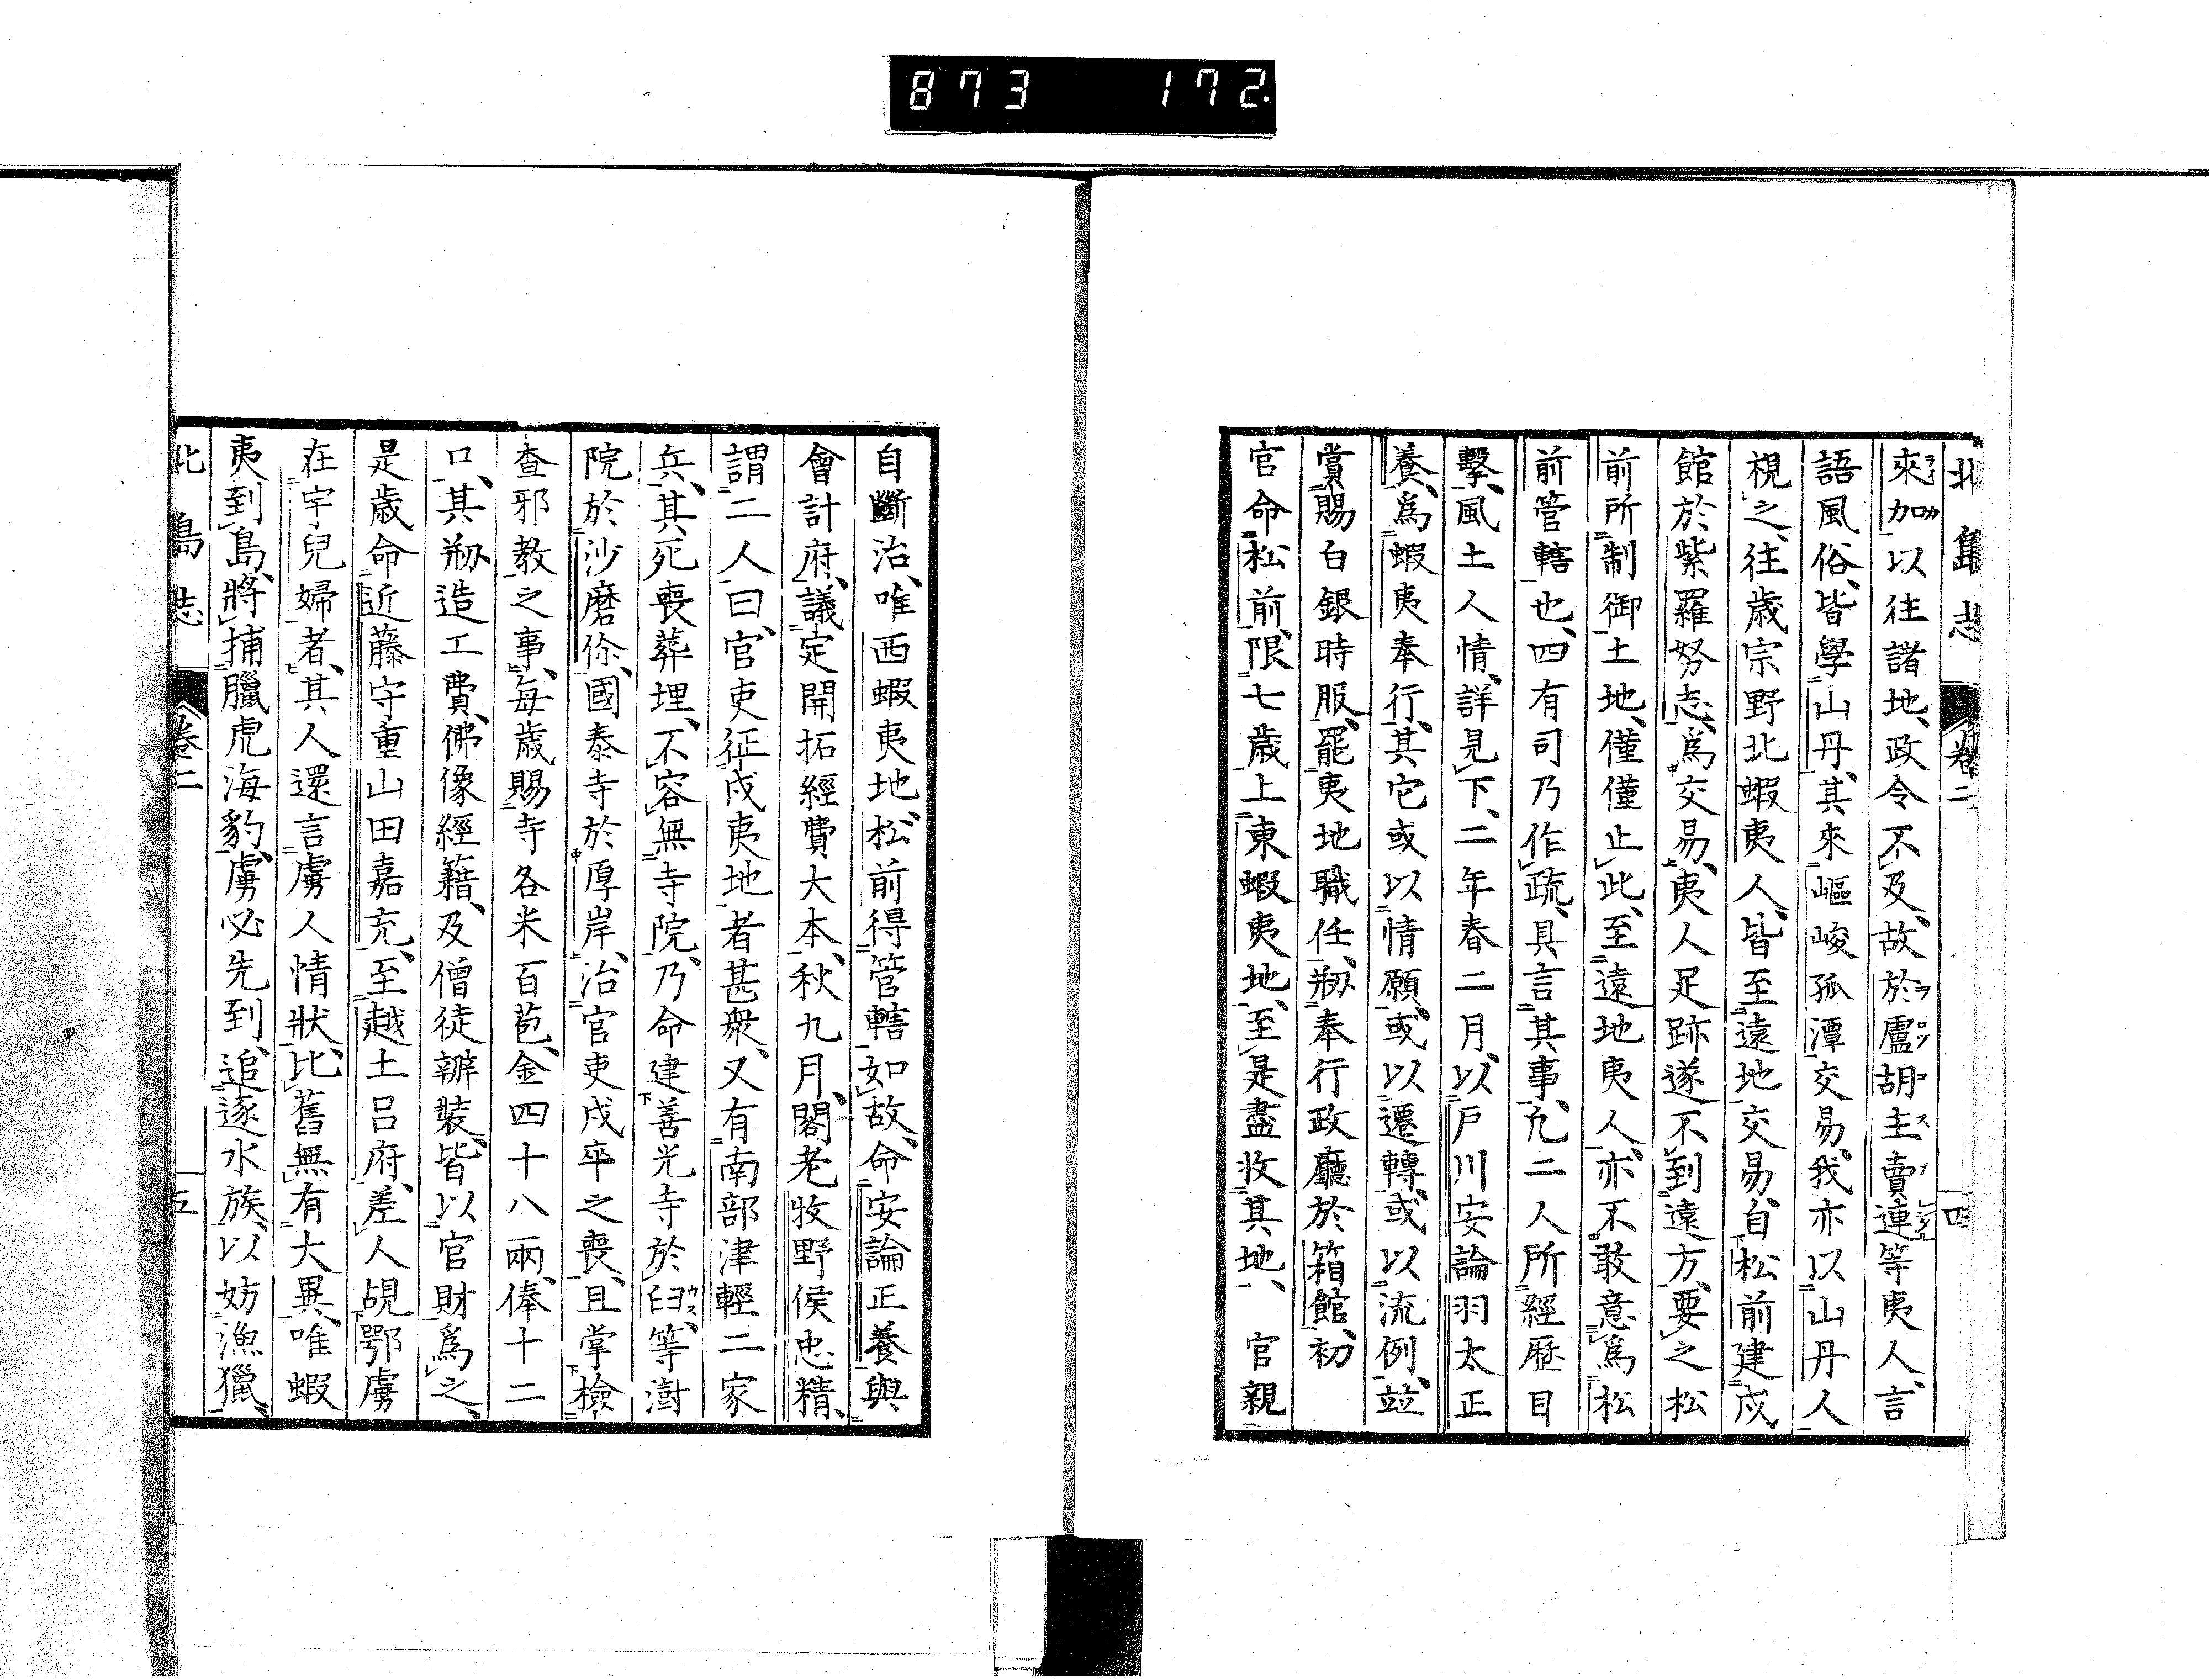 873 172.
北島志 卷二 四
來加以往諸地、政令不及、故於盧胡主賣連等夷人、言
語風俗、皆學山丹、其來嶇峻孤潭交易、我亦以山丹人
視之、往歲宗野北蝦夷人、皆至遠地交易、自松前建戍
館於紫羅努志、爲交易、夷人足跡遂不到遠方、要之松
前所制御土地、僅僅止此、至遠地夷人、亦不敢意爲松
前管轄也、四有司乃作疏、具言其事、凡二人所經歷目
擊、風土人情、詳見下、二年春二月、以戶川安論羽太正
養、爲蝦夷奉行、其它或以情願、或以遷轉、或以流例、竝
賞賜白銀時服、罷夷地職任、刱奉行政廳於箱館、初
官命松前、限七歲上東蝦夷地、至是盡收其地、 官親
自斷治、唯西蝦夷地、松前得管轄如故、命安論正養與
會計府、議定開拓經費大本、秋九月、閣老牧野侯忠精、
謂二人曰、官吏征戍夷地者甚衆、又有南部津輕二家
兵、其死喪葬埋、不容無寺院、乃命建善光寺於臼、等澍
院於沙磨伱、國泰寺於厚岸、治官吏戍卒之喪、且掌檢
查邪教之事、每歲賜寺各米百苞、金四十八兩、俸十二
口、其刱造工費、佛像經籍、及僧徒辦裝、皆以官財爲之、
是歲命近藤守重山田嘉充、至越土呂府、差人覘鄂虜
在宇兒婦者、其人還言虜人情狀、比舊無有大異、唯蝦
夷到島、將捕臘虎海豹、虜必先到、追逐水族、以妨漁獵、
北島志 卷二 五